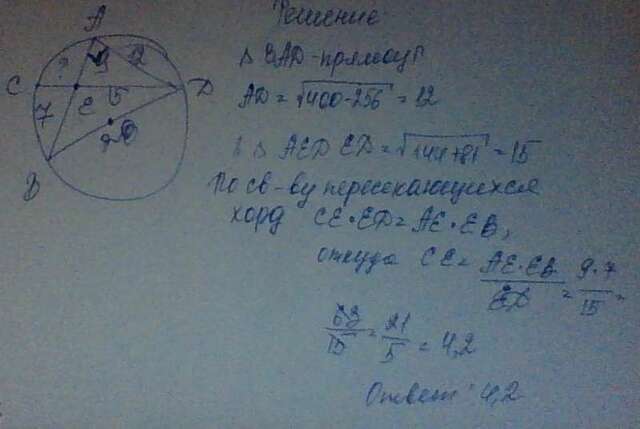 Решение
A
C
D
B
E
?
9
12
15
7
Δ BAD - прямоуг
AD = √400-256 = 12
Δ AED ED = √144+81 = 15
По св-ву пересекающихся
хорд CE·ED = AE·EB,
откуда CE = AE·EB / ED = 9·7 / 15 =
63/15 = 21/5 = 4,2
Ответ: 4,2